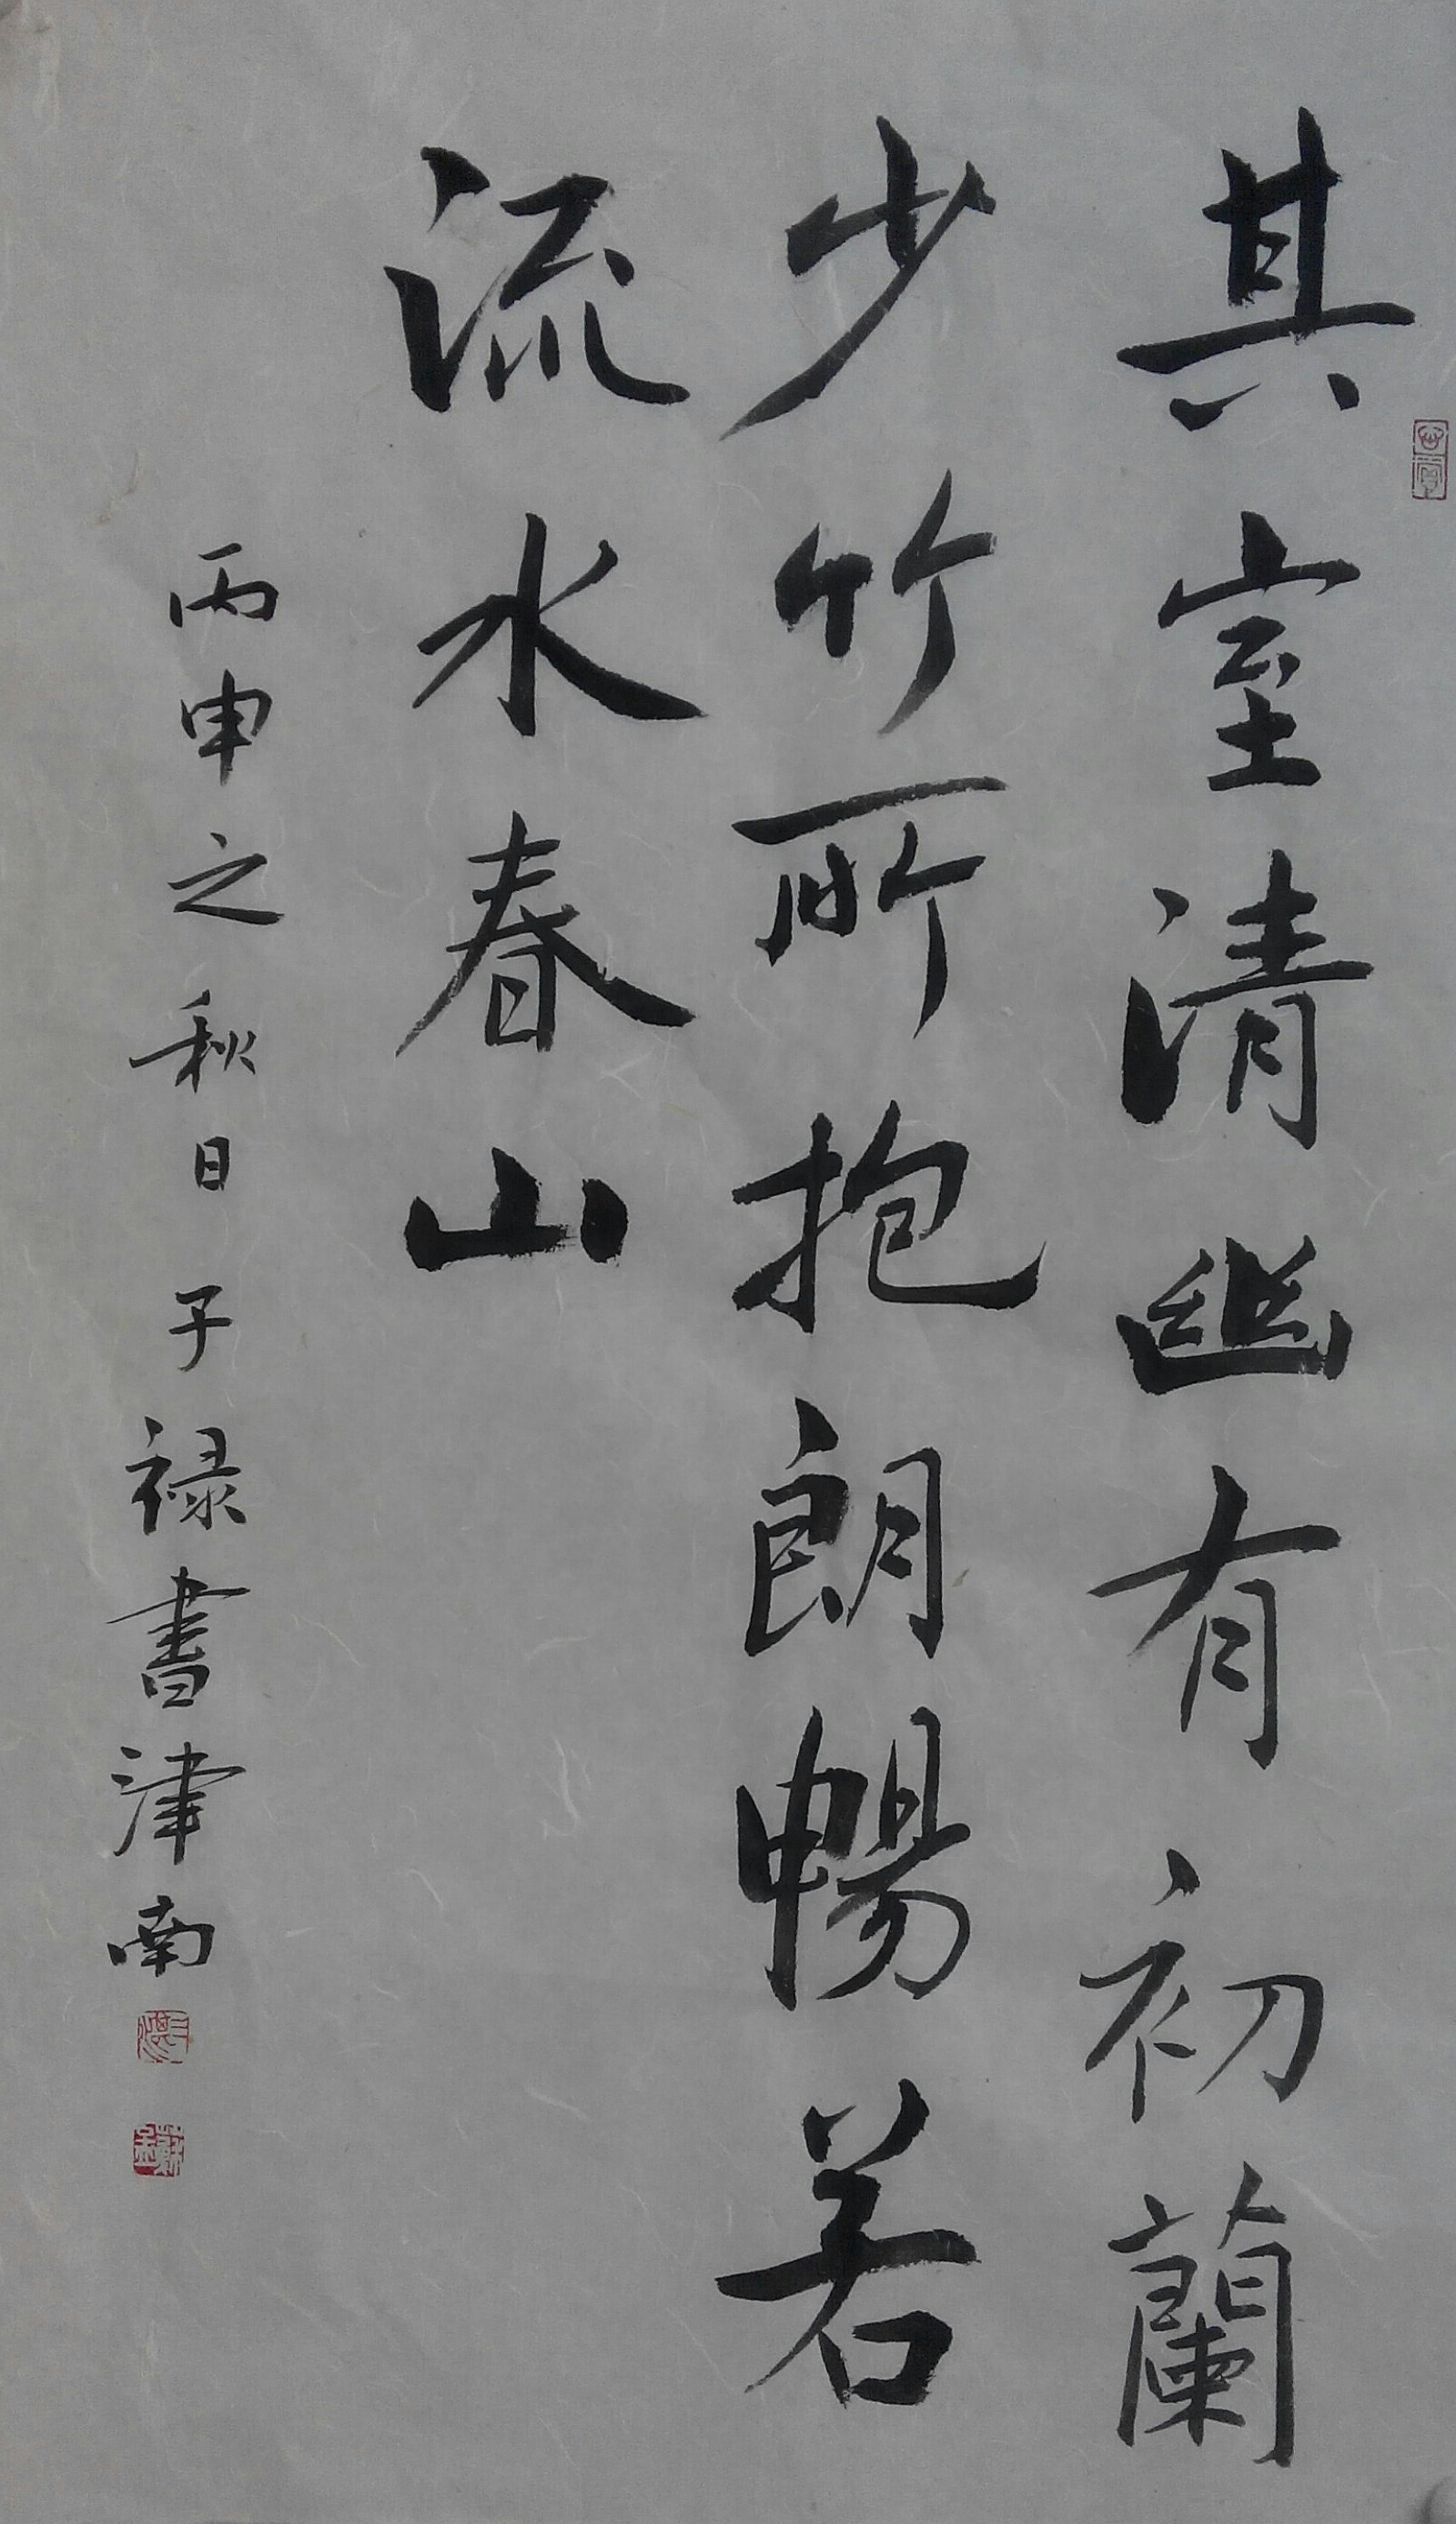 其室清幽有初蘭
少竹所抱朗暢若
流水春山
丙申之秋日子禄書津南